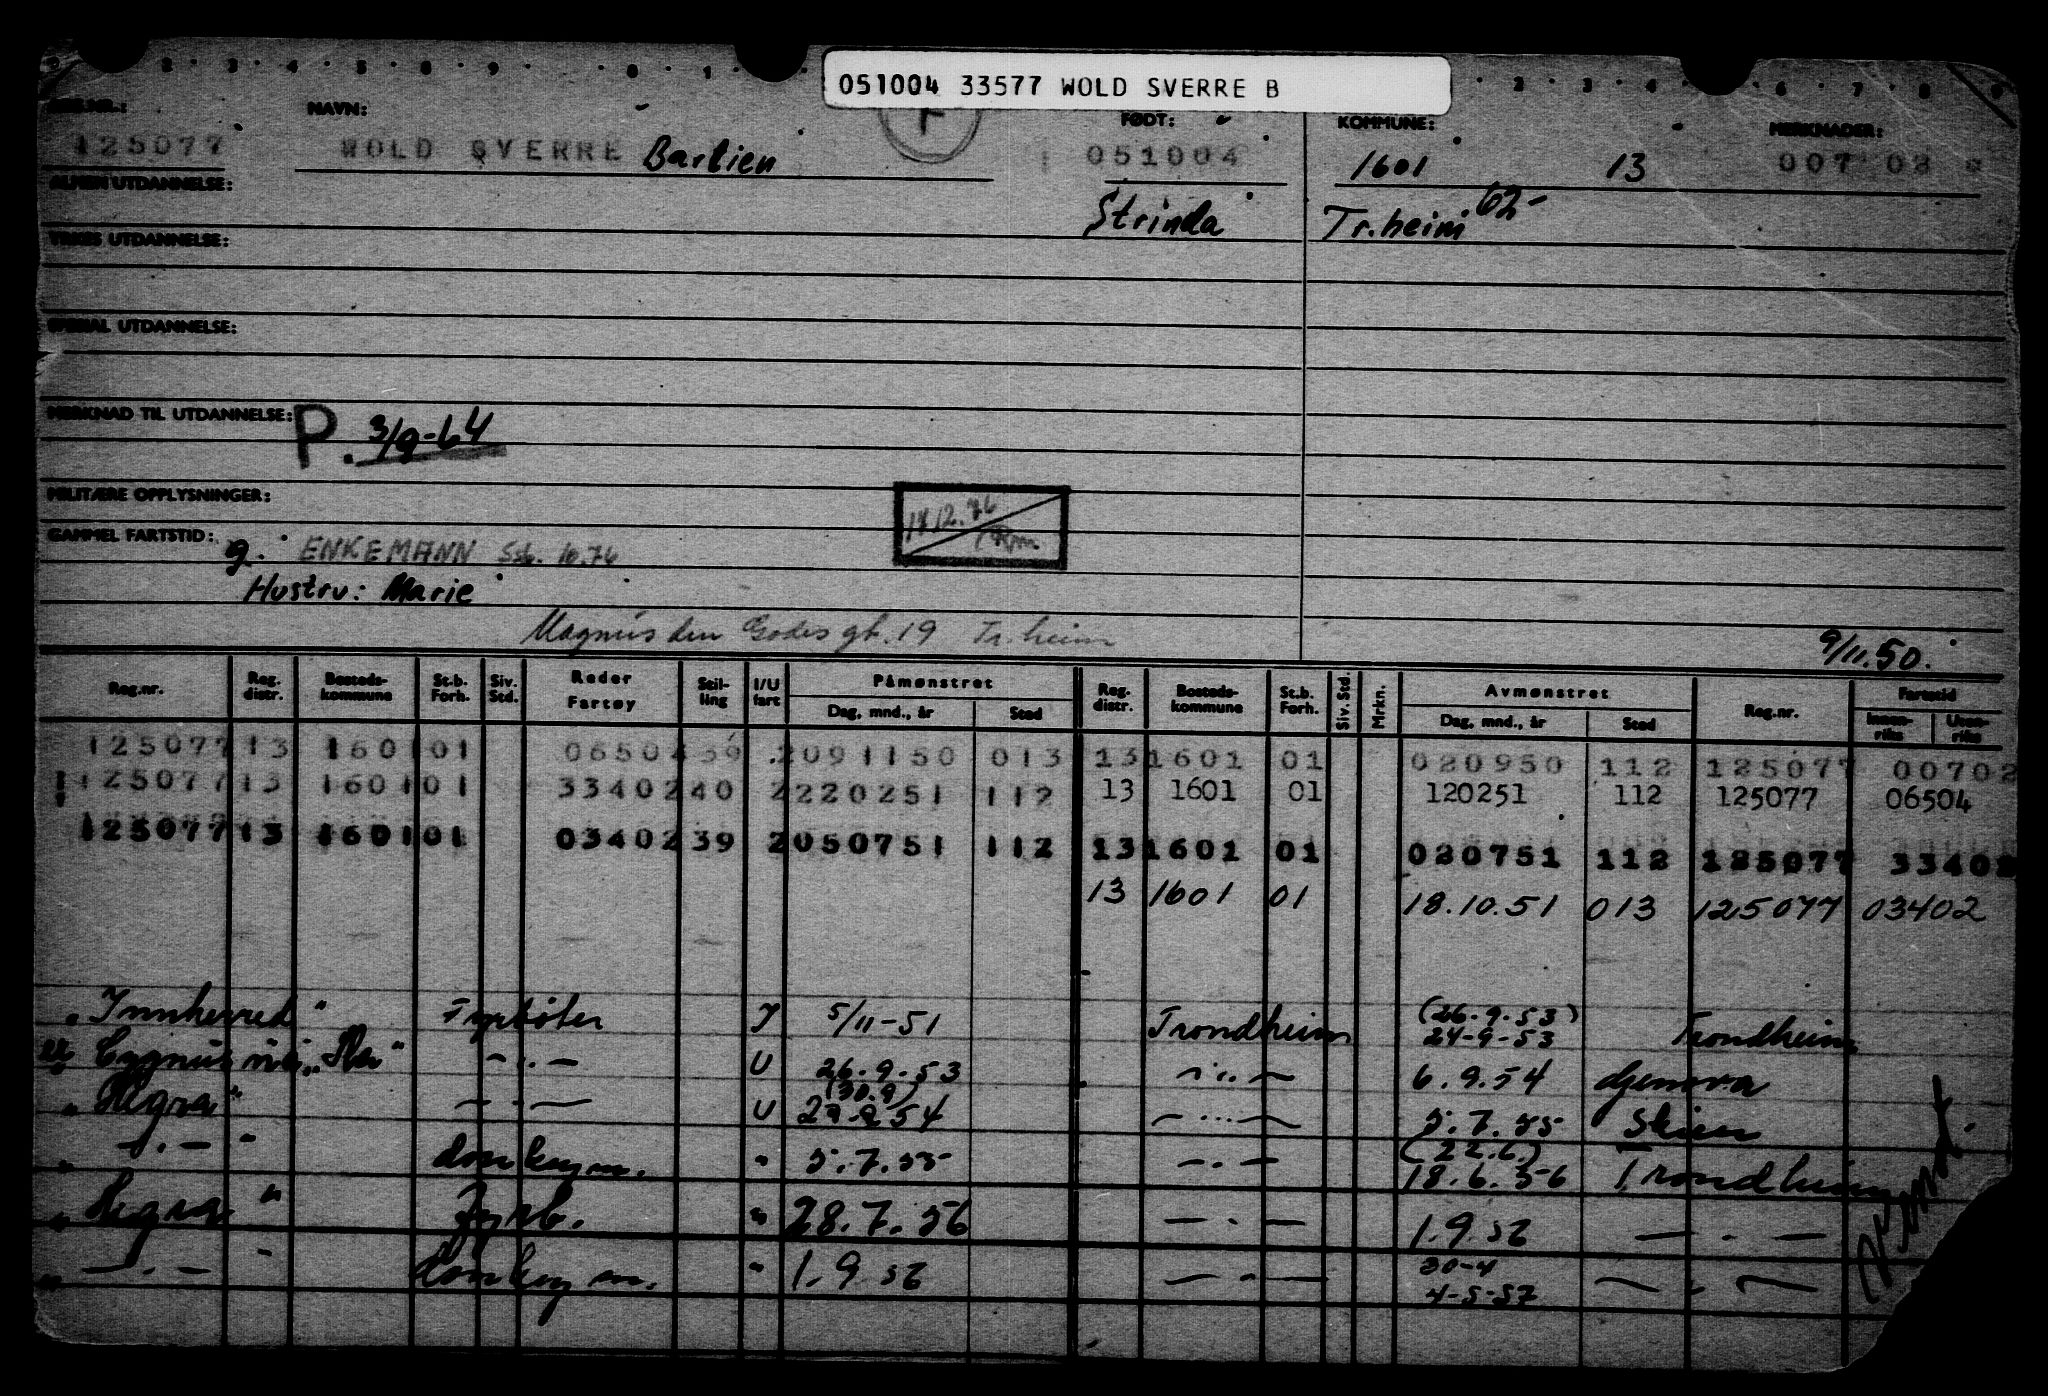 051004 33577 WOLD SVERRE B
NAVN: FØDT: KOMMUNE: MERKNADER:
125077 WOLD SVERRE Bartien 051004 1601 13 007 08
ALMEN UTDANNELSE: Strinda Tr.heim 62-
YRKES UTDANNELSE:
SPESIAL UTDANNELSE:
MERKNAD TIL UTDANNELSE: P. 3/9-64
MILITÆRE OPPLYSNINGER:
GAMMEL FARTSTID: g. ENKEMANN Ssb. 10.76
Hustru: Marie
Magnus den Godes gt. 19 Tr.heim
9/11.50.
Reg.nr. Reg. distr. Bosteds-kommune St.b. Forh. Siv. Std. Reder Fartøy Stil-ling I/U fart Påmønstret Dag, mnd., år Sted Reg. distr. Bosteds-kommune St.b. Forh. Siv. Std. Mrkn. Avmønstret Dag, mnd., år Sted Reg.nr. Fartstid Innen-riks Uten-riks
125077 13 1601 01 06504 39 2 091150 013 13 1601 01 020950 112 125077 00702
125077 13 1601 01 33402 40 2 220251 112 13 1601 01 120251 112 125077 06504
125077 13 1601 01 03402 39 2 050751 112 13 1601 01 020751 112 125077 33402
13 1601 01 18.10.51 013 125077 03402
" Innherred " Fyrbøter 5/11-51 Trondheim (26.9.53) 24-9-53 Trondheim
Cygnus - " - U 26.9.53 - " - 6.9.54 Genova
" Hegra " - " - U (30.9) 29.9.54 - " - 5.7.55 Skien
" - " - " donkeym. " 5.7.55 - " - (22.6.) 18.6.56 Trondheim
" Hegra " Fyrb. " 28.7.56 - " - 1.9.56 - " -
" - " - " donkeym. " 1.9.56 - " - 30-4 4-5-57 - " -